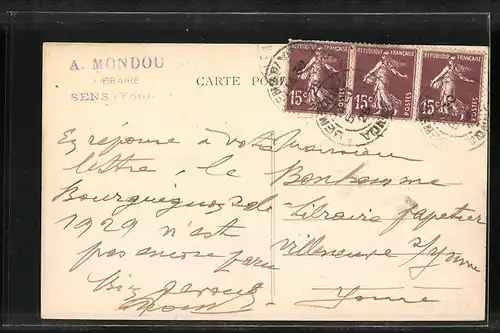 A. MONDOU
LIBRAIRE
SENS (Yonne)
CARTE POSTALE
REPUBLIQUE FRANÇAISE
15c POSTES
REPUBLIQUE FRANÇAISE
15c POSTES
REPUBLIQUE FRANÇAISE
15c POSTES
En réponse à votre
lettre, le
Bourguignon de
1929 n'est
pas encore paru
Monsieur
Bonhomme
Libraire papetier
Villeneuve s/Yonne
Yonne